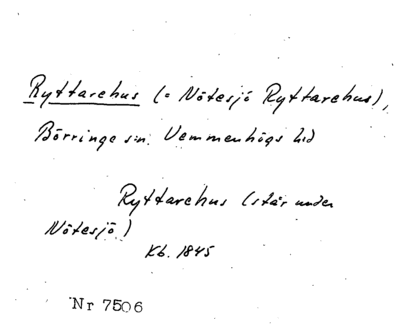 Ryttarehus (= Nötesjö Ryttarehus),
Börringe sn. Vemmenhögs hd
Ryttarehus (står under
Nötesjö)
Kb. 1845
Nr 7506